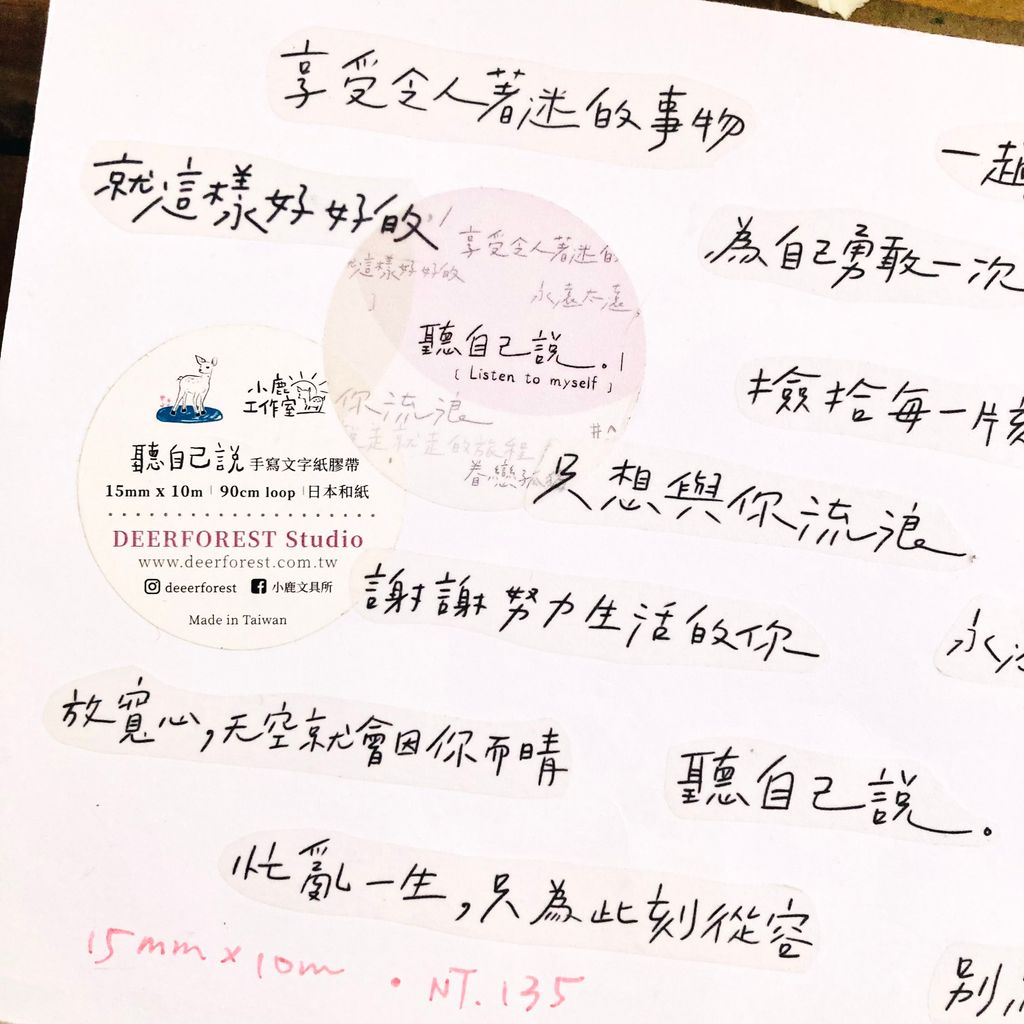 享受令人著迷的事物
一趟
就這樣好好的
為自己勇敢一次
享受令人著迷的
這樣好好的
永遠太遠
聽自己說。
( Listen to myself )
撿拾每一片刻
小鹿
工作室
你流浪
說走就走的旅程
眷戀孤獨
只想與你流浪
聽自己說 手寫文字紙膠帶
15mm x 10m | 90cm loop | 日本和紙
DEERFOREST Studio
www.deerforest.com.tw
deeerforest 小鹿文具所
Made in Taiwan
謝謝努力生活的你
永
放寬心,天空就會因你而晴
聽自己說。
忙亂一生,只為此刻從容
別
15mm x 10m • NT.135